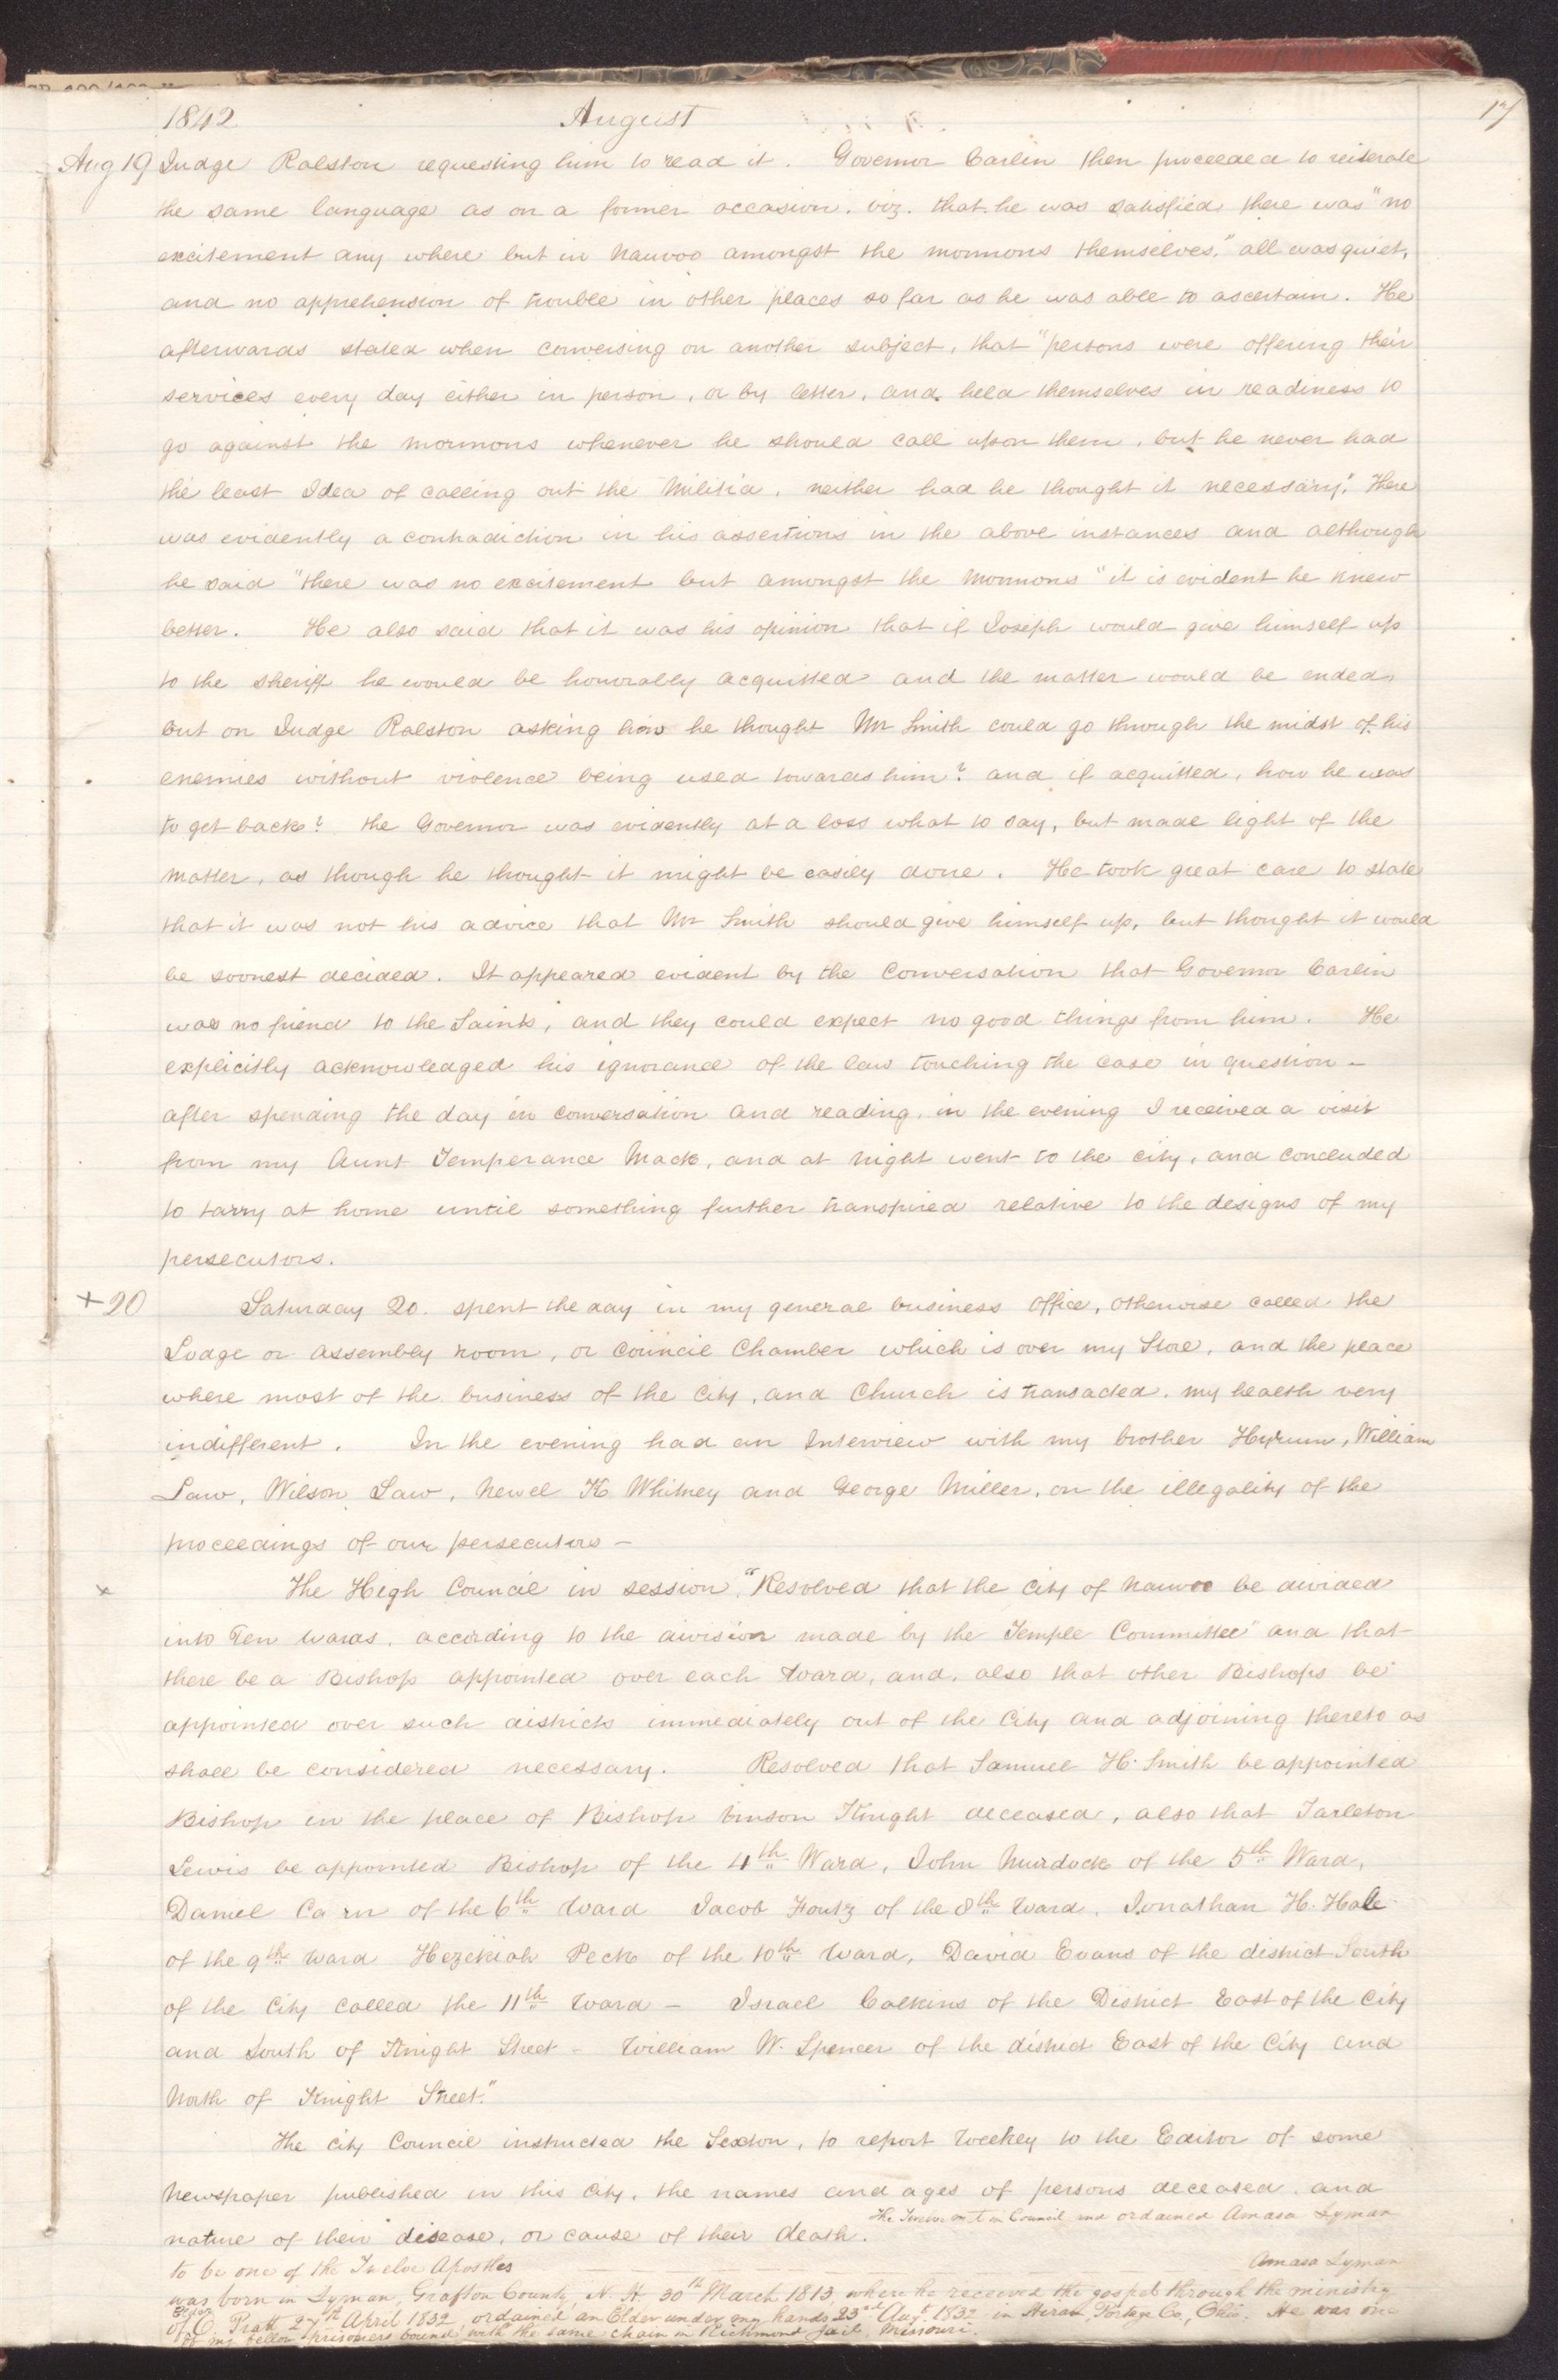 17
1842 August
Aug 19 Judge Ralston requesting him to read it. Governor Carlin then proceeded to reiterate
the same language as on a former occasion. viz. that he was satisfied there was "no
excitement any where but in Nauvoo amongst the mormons themselves," all was quiet,
and no apprehension of trouble in other places so far as he was able to ascertain. He
afterwards stated when conversing on another subject, that "persons were offering their
services every day either in person, or by letter, and held themselves in readiness to
go against the mormons whenever he should call upon them, but he never had
the least Idea of calling out the Militia, neither had he thought it necessary." There
was evidently a contradiction in his assertions in the above instances and although
he said "there was no excitement but amongst the Mormons" it is evident he knew
better. He also said that it was his opinion that if Joseph would give himself up
to the sheriff he would be honorably acquitted and the matter would be ended,
but on Judge Ralston asking how he thought Mr Smith could go through the midst of his
enemies without violence being used towards him? and if acquitted, how he was
to get back? the Governor was evidently at a loss what to say, but made light of the
matter, as though he thought it might be easily done. He took great care to state
that it was not his advice that Mr Smith should give himself up, but thought it would
be soonest decided. It appeared evident by the Conversation that Governor Carlin
was no friend to the Saints, and they could expect no good things from him. He
explicitly acknowledged his ignorance of the law touching the case in question –
after spending the day in conversation and reading, in the evening I received a visit
from my Aunt Temperance Mack, and at night went to the city, and concluded
to tarry at home until something further transpired relative to the designs of my
persecutors.
+ 20 Saturday 20. spent the day in my general business office, otherwise called the
Lodge or assembly room, or Council Chamber which is over my Store, and the place
where most of the business of the City, and Church is transacted. my health very
indifferent. In the evening had an Interview with my brother Hyrum, William
Law, Wilson Law, Newel K Whitney and George Miller, on the illegality of the
proceedings of our persecutors –
x The High Council in session "Resolved that the city of Nauvoo be divided
into Ten wards, according to the division made by the Temple Committee" and that
there be a Bishop appointed over each Ward, and, also that other Bishops be
appointed over such districts immediately out of the City and adjoining thereto as
shall be considered necessary. Resolved that Samuel H. Smith be appointed
Bishop in the place of Bishop Vinson Knight deceased, also that Tarleton
Lewis be appointed Bishop of the 4th Ward, John Murdock of the 5th Ward,
Daniel Carn of the 6th Ward Jacob Foutz of the 8th Ward, Jonathan H. Hale
of the 9th Ward Hezekiah Peck of the 10th Ward, David Evans of the district South
of the City called the 11th Ward – Israel Calkins of the District East of the City
and South of Knight Street – William W. Spencer of the district East of the City and
North of Knight Street."
The City Council instructed the Sexton, to report Weekly to the Editor of some
Newspaper published in this City, the names and ages of persons deceased, and
nature of their disease, or cause of their death. The Twelve met in Council and ordained Amasa Lyman
to be one of the Twelve Apostles Amasa Lyman
was born in Lyman, Grafton County, N. H. 30th March 1813, where he received the gospel through the ministry
of Elder O. Pratt 27th April 1832, ordained an Elder under my hands 23rd Augt. 1832 in Hiram, Portage Co, Ohio. He was one
of my fellow prisoners bound with the same chain in Richmond jail, Missouri.